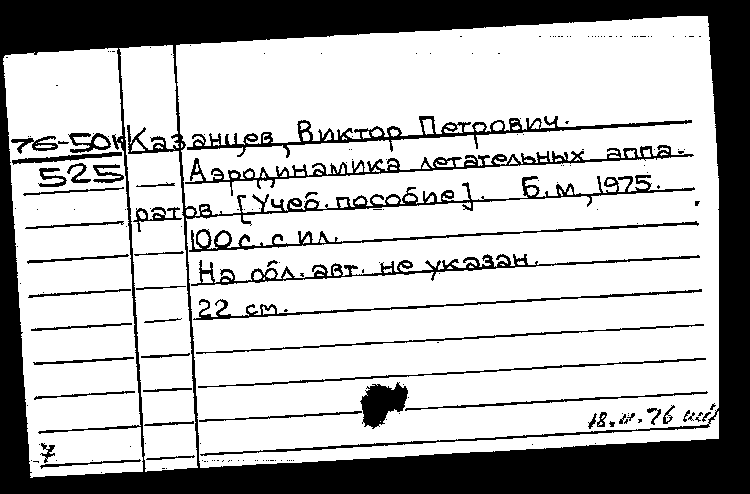 76-50к Казанцев, Виктор Петрович.
525 Аэродинамика летательных аппа-
ратов. [Учеб. пособие]. Б.м., 1975.
100 с. с ил.
На обл. авт. не указан.
22 см.
7